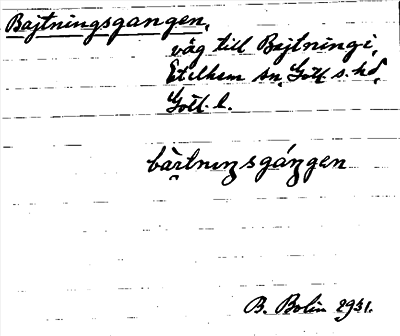 Bajtningsgangen,
väg till Bajtning i,
Etelhem sn, Gotl. s. hd,
Gotl. l.
bàɪtnɪŋsgáŋgen
B. Bolin 1931.